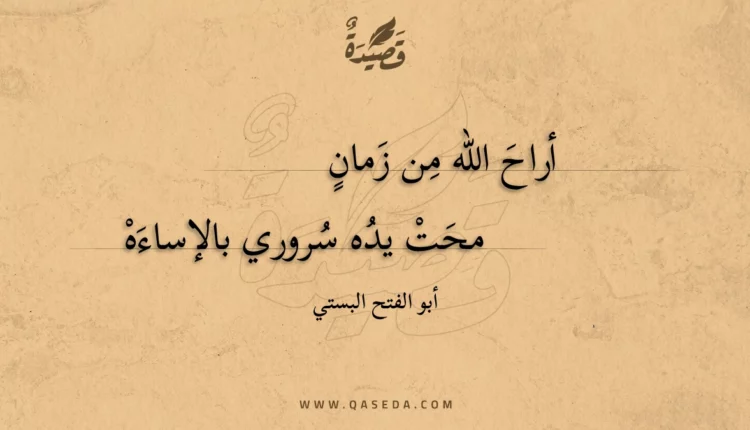 قَصِيْدَةٌ
أراحَ الله مِن زَمانٍ
محَتْ يدُه سُروري بالإساءَهْ
أبو الفتح البستي
WWW.QASEDA.COM